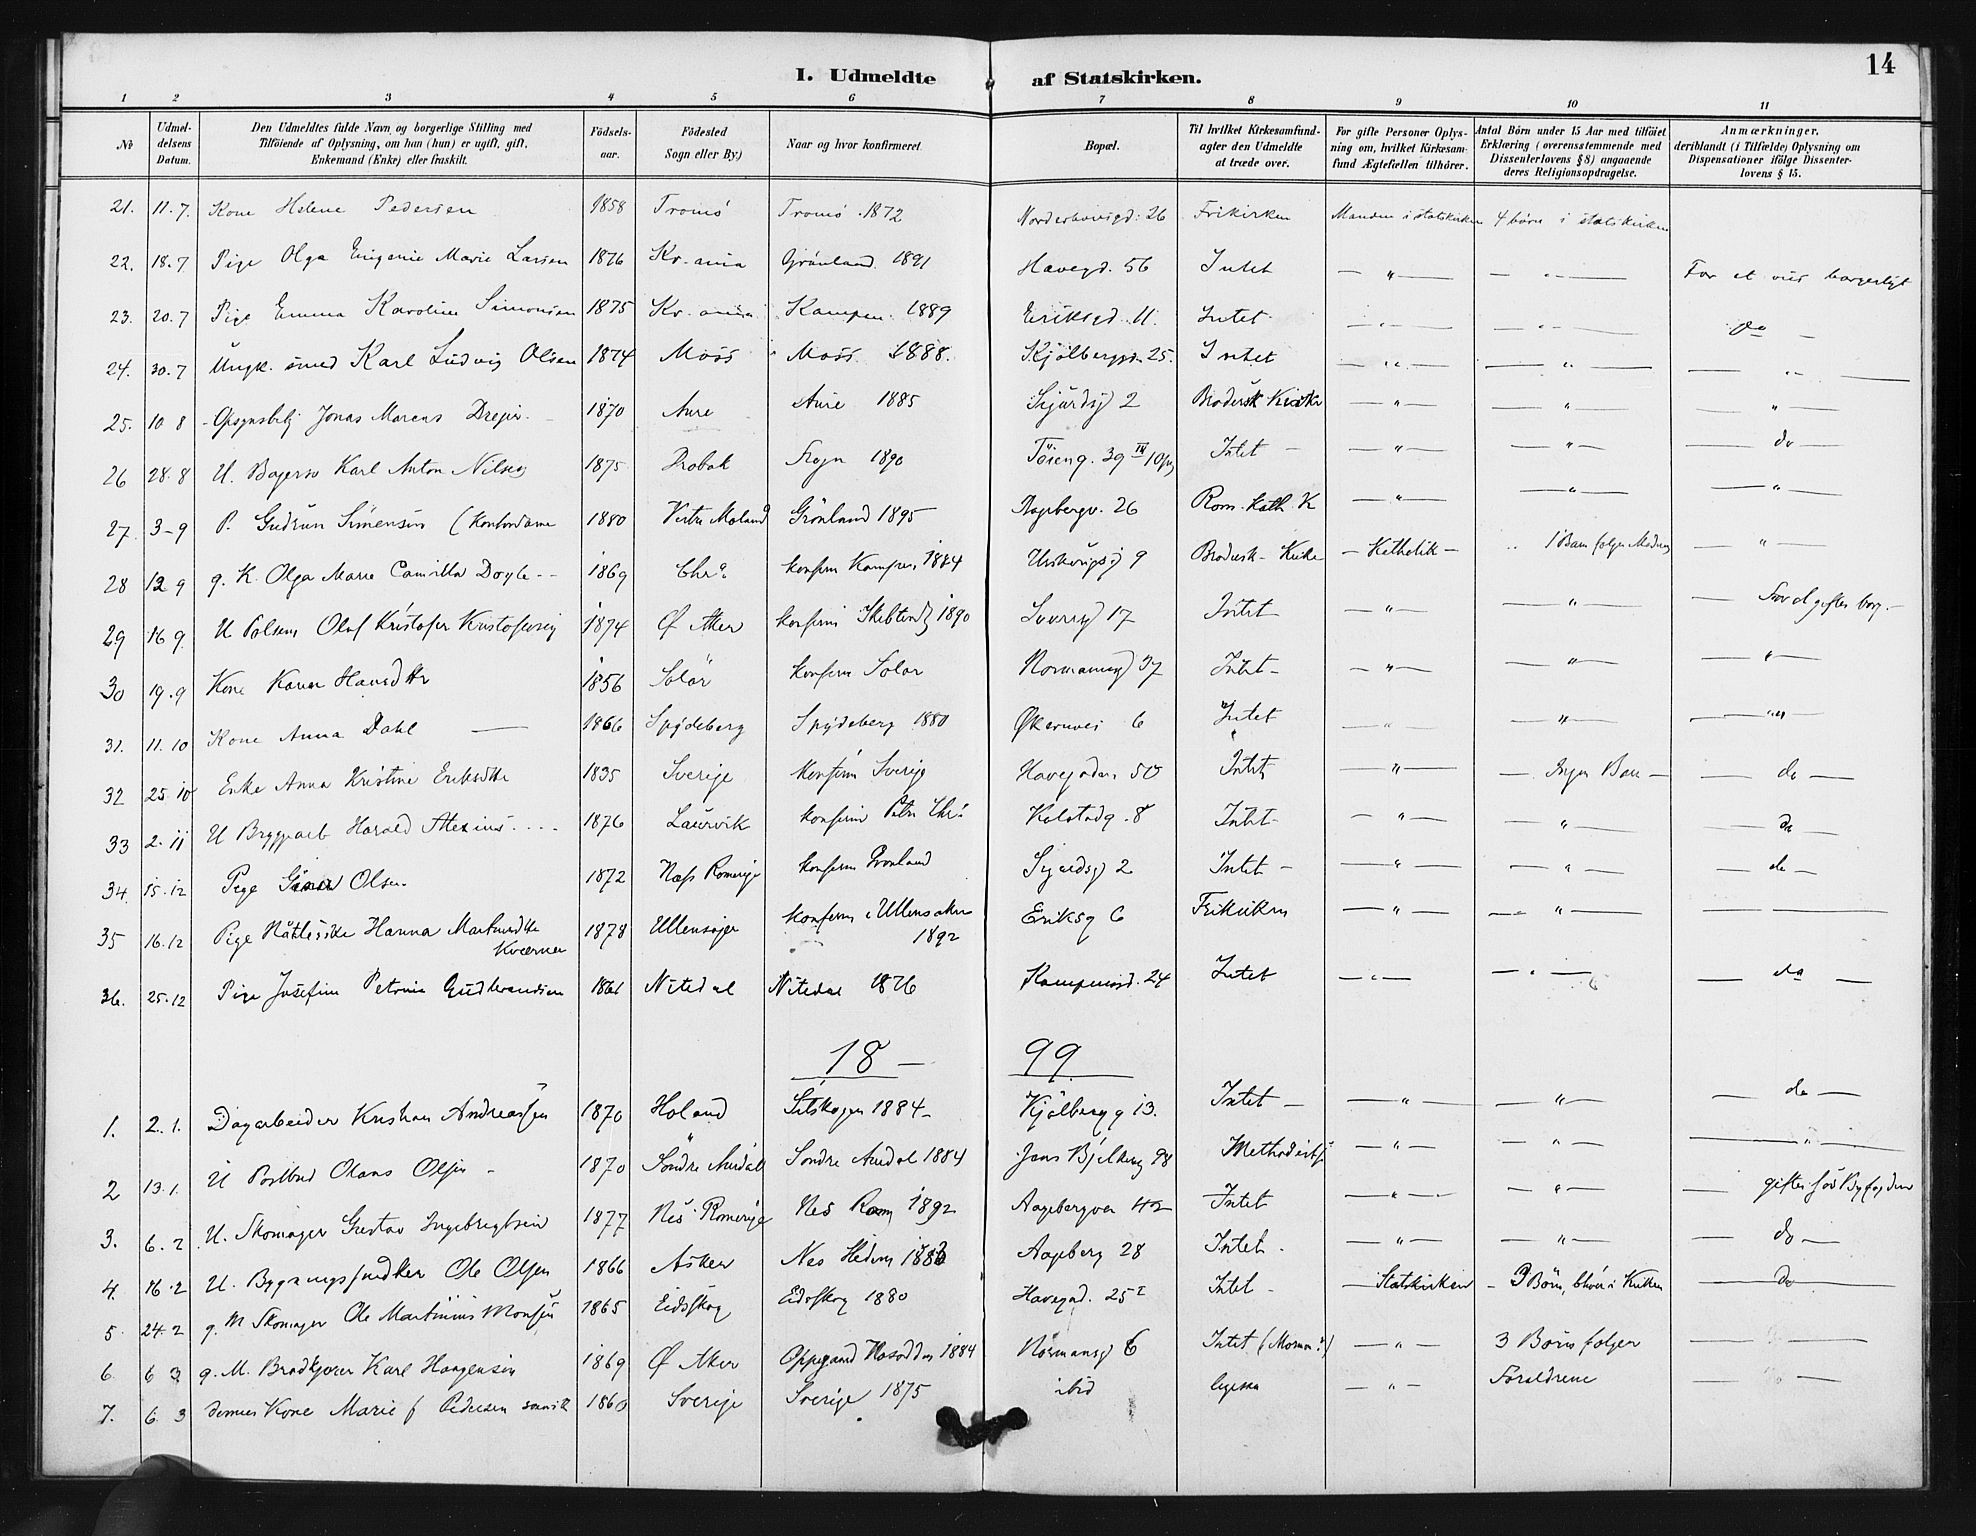 I. Udmeldte af Statskirken.
14
1 2 3 4 5 6 7 8 9 10 11
No
Udmel-
delsens
Datum.
Den Udmeldtes fulde Navn og borgerlige Stilling med
Tilföiende af Oplysning, om han (hun) er ugift, gift,
Enkemand (Enke) eller fraskilt.
Födsels-
aar.
Födested
Sogn eller By.)
Naar og hvor konfirmeret.
Bopæl.
Til hvilket Kirkesamfund-
agter den Udmeldte
at træde over.
For gifte Personer Oplys-
ning om, hvilket Kirkesam-
fund Ægtefællen tilhörer.
Antal Börn under 15 Aar med tilföiet
Erklæring (overensstemmende med
Dissenterlovens § 8) angaaende
deres Religionsopdragelse.
Anmærkninger,
deriblandt (i Tilfælde) Oplysning om
Dispensationer ifölge Dissenter-
lovens § 15.
21. 11.7. Kone Helene Pedersen 1858 Tromsö Tromsö 1872 26 Frikirken Manden i statskirken 4 börn i statskirken
22. 18.7 Pige Olga Eugenie Marie Larsen 1876 Kr.ania Grönland 1891 Havegd. 56 Intet — " — — " — For at vies borgerligt
23. 20.7 Pige Emma Karoline Simonsen 1875 Kr.ania Kampen 1889 Eriksgd. 11. Intet — " — — " — do —
24. 30.7 Ungk. smed Karl Ludvig Olsen 1874 Moss Moss 1888. Kjölberggd. 25. Intet — " — — " — — " —
25. 10 8 Opsynsbetj Jonas Marcus Dreyer 1870 Aure Aure 1885 Sigurdsg 2 Brödersk Kirke — " — — " — — " —
26 28.8 U. Karl Anton Nilsen 1875 Drobak Frogn 1890 Töieng. 39 IV Intet — — " — — " — — do —
27. 3-9 P. Gudrun Simensen (Kontordame 1880 Vestre Moland Grönland 1895 Aagebergv. 26 Rom. Kath. K — " — — " — — " —
28 12 9 g. K. Olga Marie Camilla Doyle 1869 Chra. konfirm Kampen 1884 9 Brödersk-Kirke — Katholik — 1 Barn følger Moderen — " —
29 16 9. U Olaf Kristofer Kristofersen 1874 Ø Aker konfirm 1890 17 Intet — " — — " — — For at giftes borg. —
30 19.9 Kone Karen Hansdtr 1856 Solör konfirm Solör Normannsg 37 Intet — — " — — " — — " —
31. 11.10 Kone Anna Dahl 1866 Spydeberg Spydeberg 1880 Økernvei 6 Intet — " — — " — — " —
32 25.10 Enke Anna Kristine Eriksdtr 1835 Sverige konfirm Sverige Havegaden 50 Intet — " — — Ingen Barn — — do —
33 2.11 U Bryggearb Harald 1876 Laurvik konfirm Petri Chra. Kolstadg. 8 Intet — — " — — " — — do —
34. 15.12 Pige Olsen 1872 Næs Romerige konfirm Grönland Sigurdsg 2 Intet — — " — — " — — do —
35 16.12 Pige Hanna Martinsdtr
Kværner 1878 Ullensager konfirm i Ullensaker
1892 Eriksg 6 Frikirken — " — — " — —
36. 25.12 Pige Josefine Petronie Gudbrandsen 1861 Nitedal Nitedal 1876 Kampensgd. 24 Intet — " — — " — — do —
18 — 99.
1. 2.1. Dagarbeider Kristian Andreassen 1870 Holand Setskogen 1884 — Kjölbergg 13. Intet — — " — — " — — do —
2 13.1. U Postbud Olaus Olsen — 1870 Söndre Aurdal Söndre Aurdal 1884 Jens Bjelkesg 98 Methodistk — " — — " — — " —
3. 6.2. U. Skomager Gustav Ingebrigtsen 1877 Nes Romerige Nes Rom 1892 Aagebergvei 42 Intet — " — — " — — giftes for Byfogden
4. 16.2 U. Bygningssnedker Ole Olsen 1866 Asker Nes Hedem Aageberg 28 Intet. — " — — " — — do —
5. 24.2 g. M Skomager Ole Martinius Monsen 1865 Eidsskog Eidsskog 1880 Havegad. 25 Intet — — Statskirken — 3 Börn, bliver i Kirken — do —
6. 6 3 g. M. Brödkjörer Karl Haagensen 1869 Ø Aker Oppegaard 1884 Normansg 6 Intet (Mormon?) — " — 3 Börn følger —
7. 6 3 dennes Kone Marie f Pedersen 1860 Sverige Sverige 1875 ibid ligesaa — " — Foraldrene —